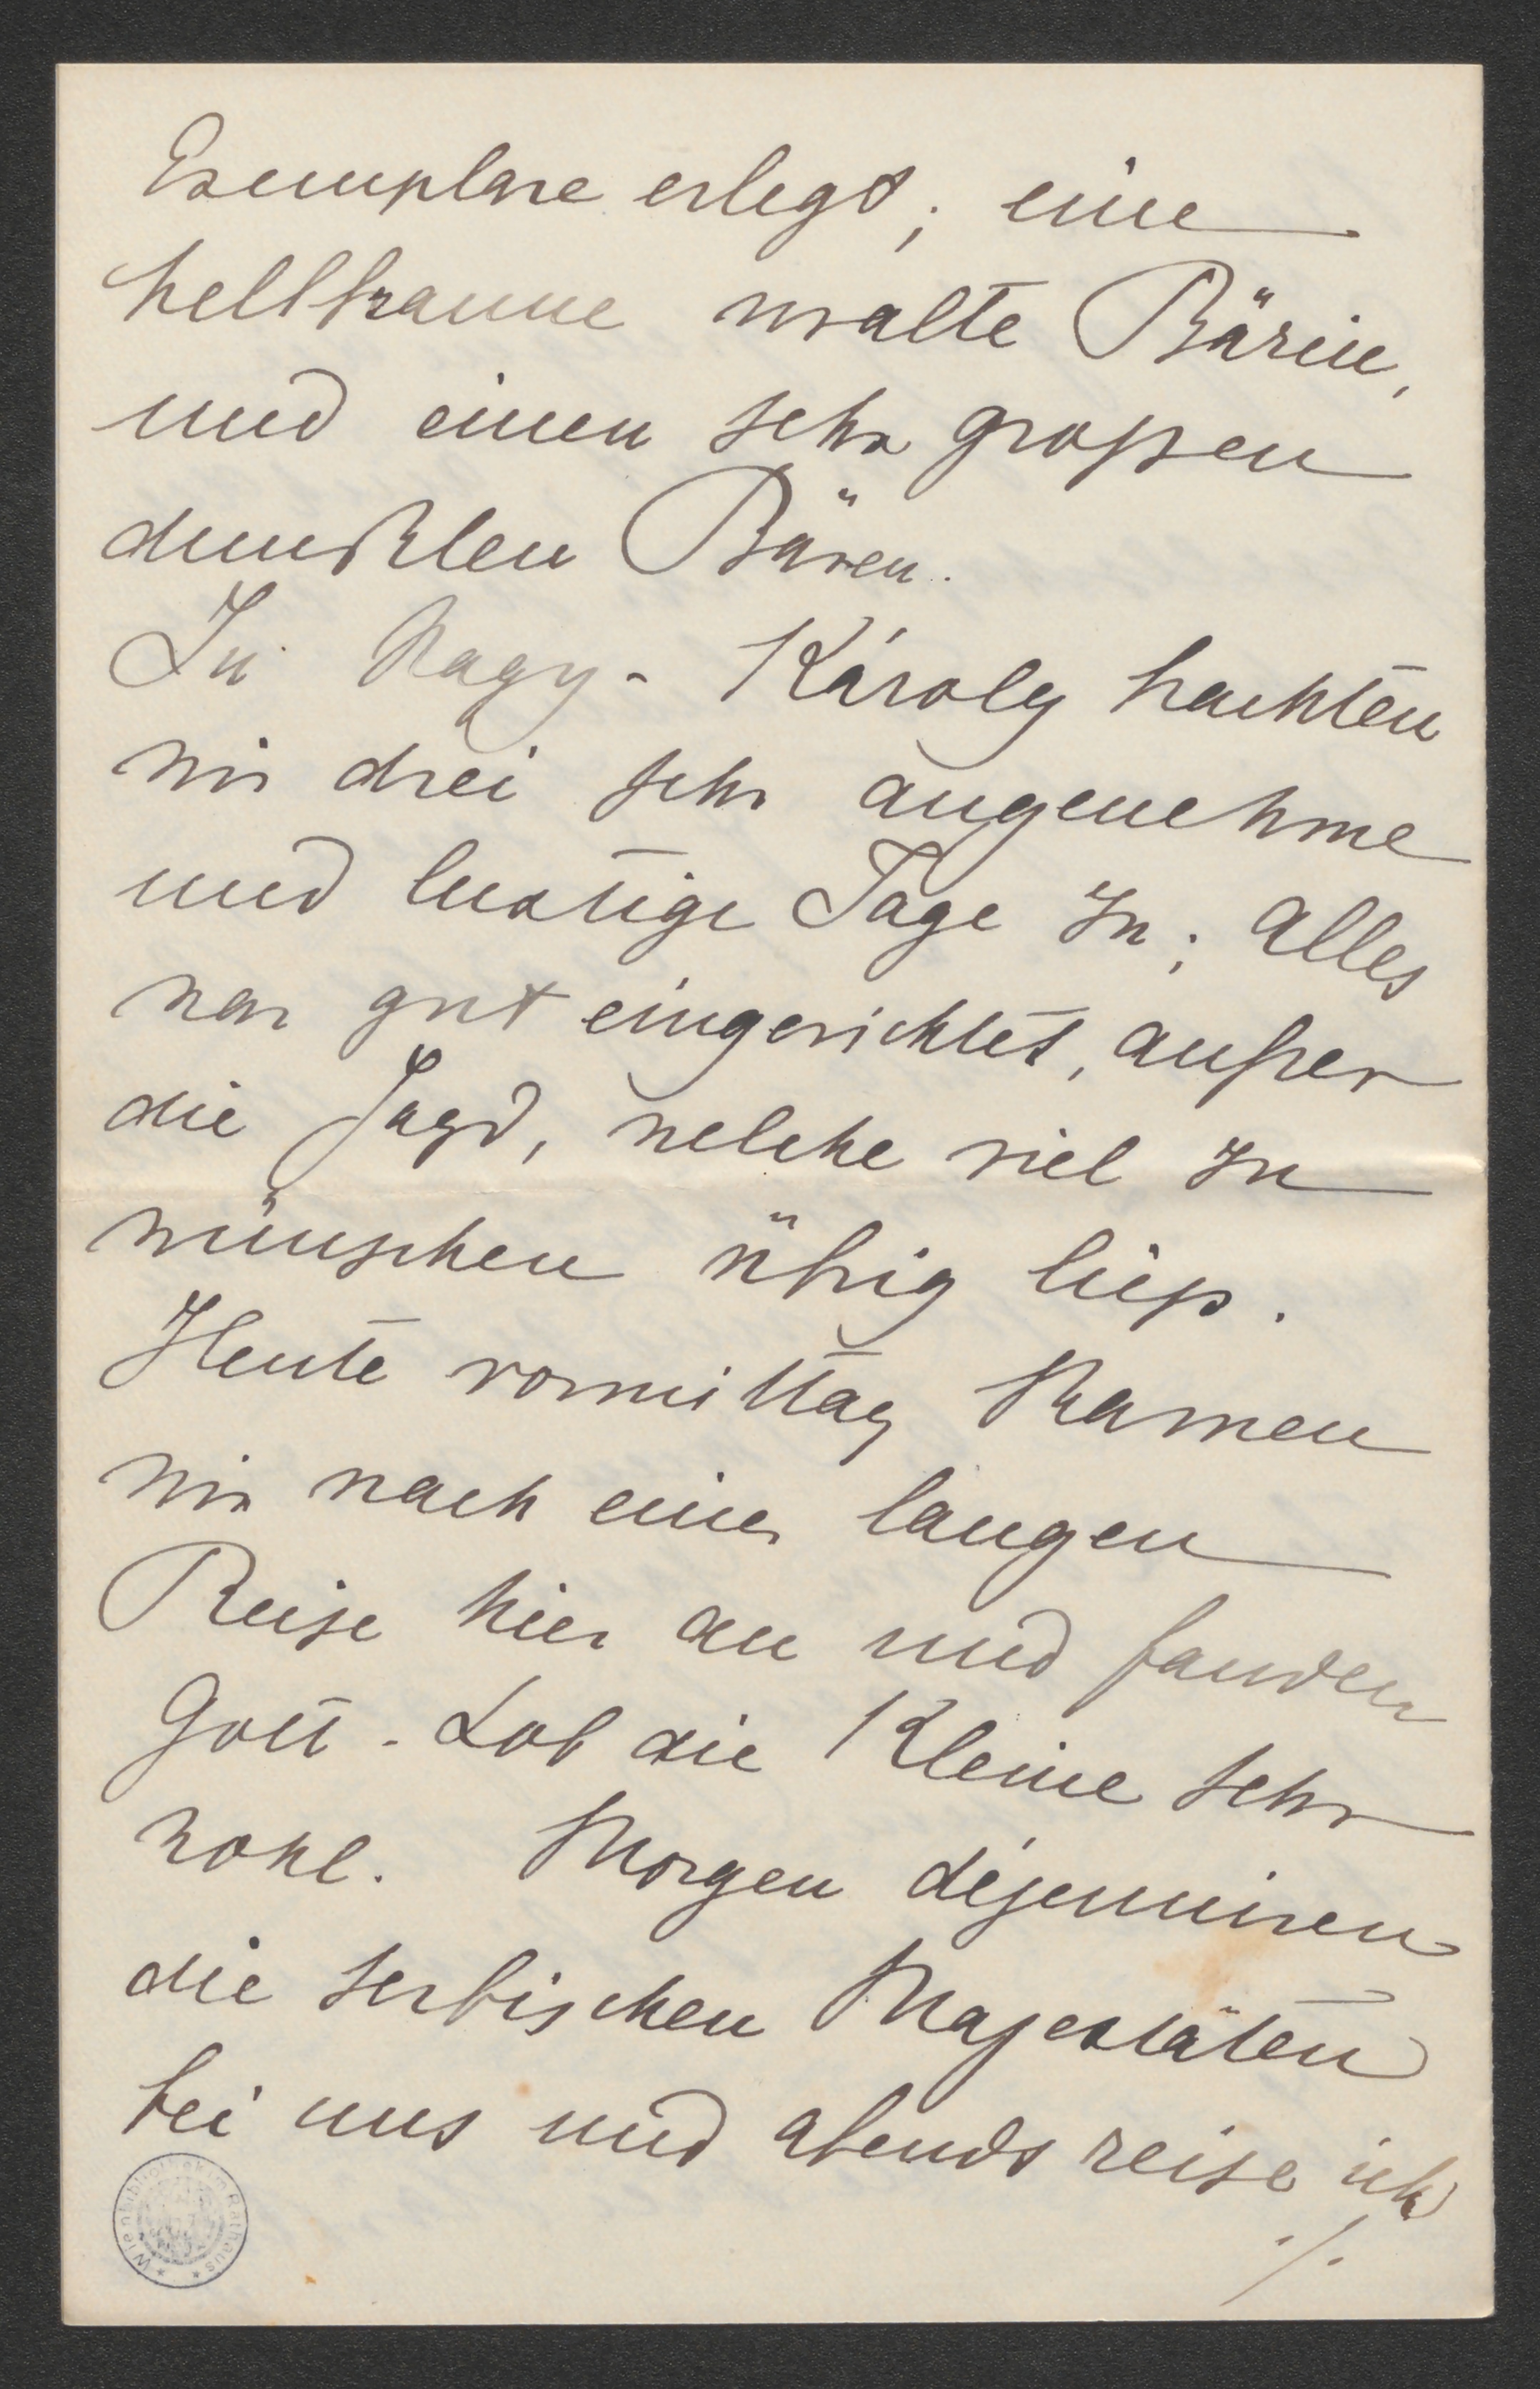 Exemplare erlegt; eine
hellbraune uralte Bärin,
und einen sehr großen
dunklen Bären.
In Nagy-Károly brachten
wir drei sehr angenehme
und lustige Tage zu; alles
war gut eingerichtet, außer
die Jagd, welche viel zu
wünschen übrig ließ.
Heute vormittag kamen
wir nach einer langen
Reise hier an und fanden
Gott-Lob die Kleine sehr
wohl. Morgen déjeuniren
die serbischen Majestäten
bei uns und abends reise ich
./.
Wienbibliothek im Rathaus